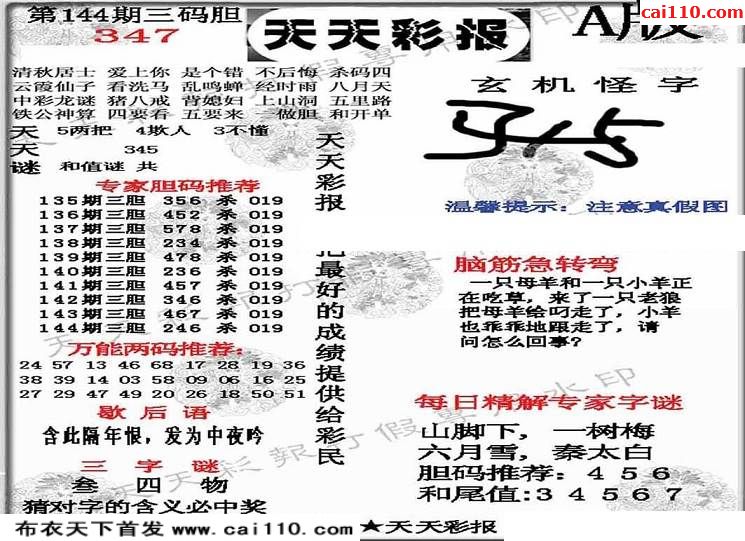 第144期三码胆
347
天天彩报
A版
cai110.com
清秋居士 爱上你 是个错 不后悔 杀码四
云霞仙子 看洗马 乱鸣蝉 经时雨 八月天
中彩龙谜 猪八戒 背媳妇 上山洞 五里路
铁公神算 四要看 五要来 一做胆 和开单
天 5两把 4欺人 3不懂
天 345
谜 和值谜 共
专家胆码推荐
135期三胆 356 杀 019
136期三胆 452 杀 019
137期三胆 578 杀 019
138期三胆 234 杀 019
139期三胆 478 杀 019
140期三胆 236 杀 019
141期三胆 457 杀 019
142期三胆 346 杀 019
143期三胆 467 杀 019
144期三胆 246 杀 019
万能两码推荐:
24 57 13 46 68 17 28 19 36
38 39 14 03 58 09 06 16 25
27 29 47 49 20 26 18 50 51
歇后语
含此隔年恨，发为中夜吟
三字谜
叁四物
猜对字的含义必中奖
天天彩报
把最好的成绩提供给彩民
玄机怪字
温馨提示：注意真假图
脑筋急转弯
一只母羊和一只小羊正
在吃草，来了一只老狼
把母羊给叼走了，小羊
也乖乖地跟走了，请
问怎么回事?
每日精解专家字谜
山脚下，一树梅
六月雪，秦太白
胆码推荐：4 5 6
和尾值:3 4 5 6 7
布衣天下首发 www.cai110.com
★天天彩报